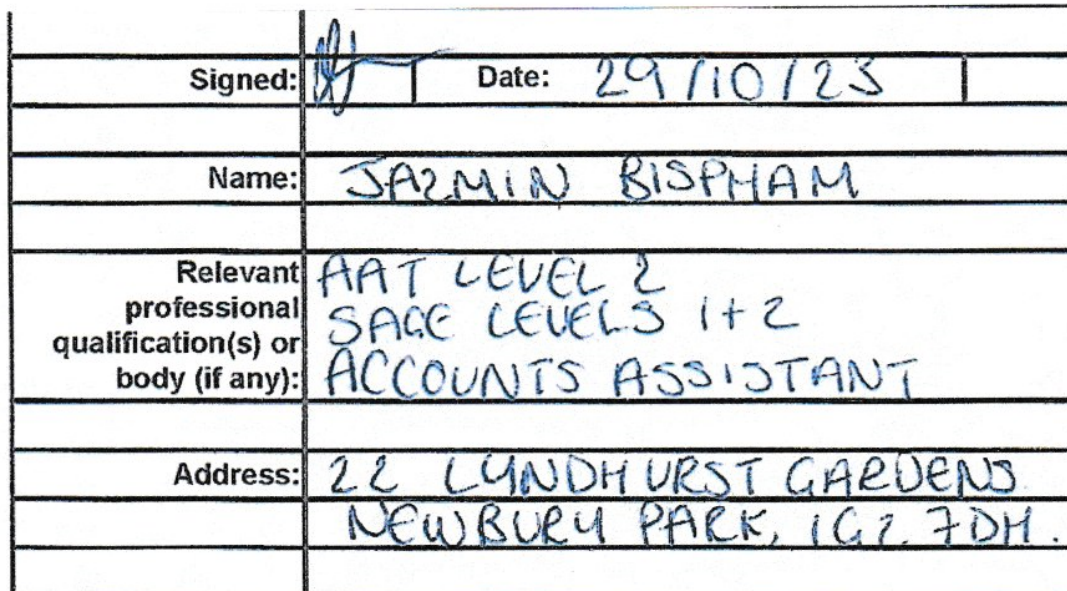 Signed: Date: 29/10/23
Name: JAZMIN BISPHAM
Relevant professional qualification(s) or body (if any):
AAT LEVEL 2
SAGE LEVELS 1+2
ACCOUNTS ASSISTANT
Address: 22 LYNDHURST GARDENS
NEWBURY PARK, IG2 7DH.